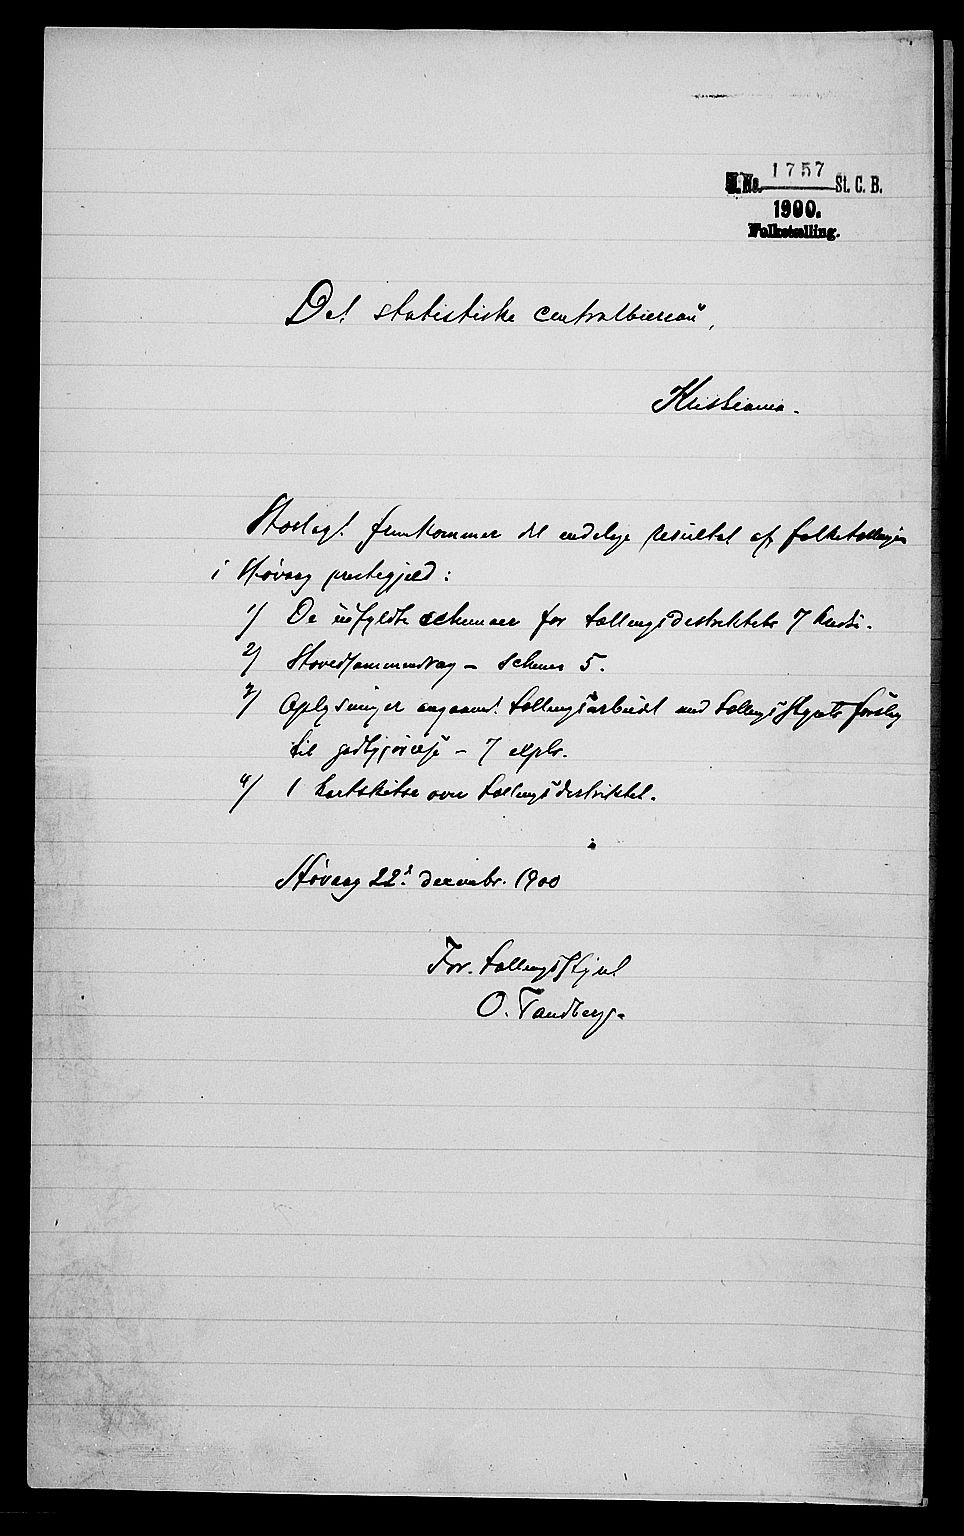 J. No. 1757 St. C. B.
1900.
Folketælling.
Det statistiske centralbüreau,
Kristiania.
Hoslagt fremkommer det endelige resultat af folketællingen
i Høvaag prestegjeld:
1) De üdfyldte schemaer for tællingsdistriktets 7 kredse.
2) Hovedsammendrag – schema 5.
3) Oplysninger angaaende tællingsarbeidet med tællingsstyrets forslag
til godtgjørelse – 7 expl.
4) 1 kartskitse over tællingsdistriktet.
Høvaag 22. decembr. 1900
For tællingsstyret
O. Tandberg.